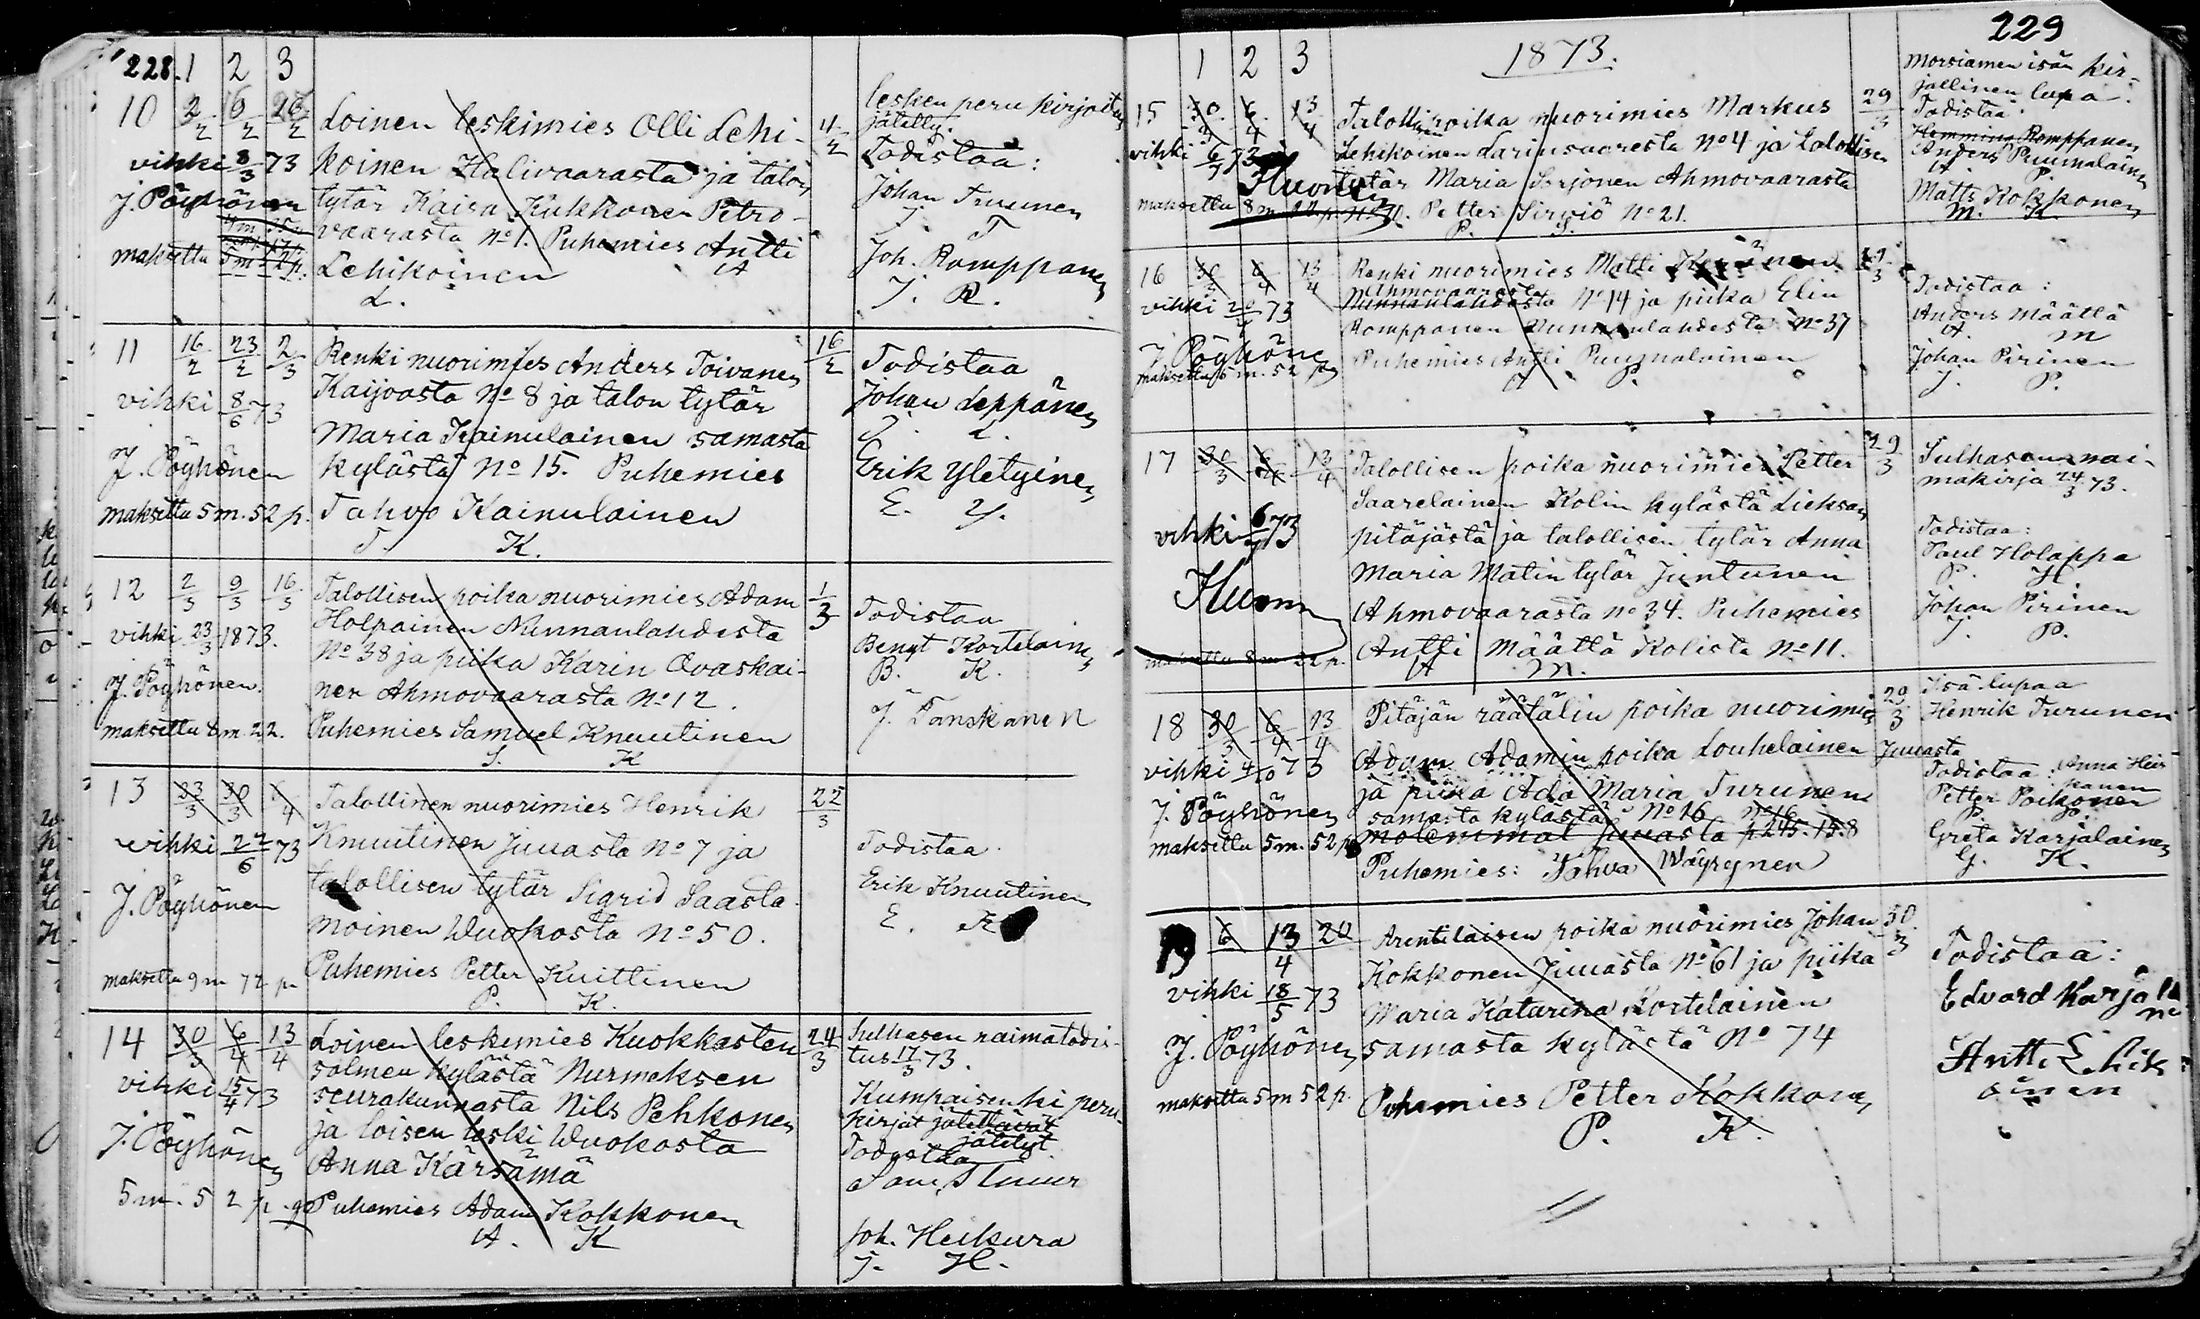 228. 1 2 3
10 2/2 16/2 26/2
vihki 8/3 73
J. Pöyhönen
maksettu 5 m 52 p.
Loinen leskimies Olli Lehi-
koinen Halivaarasta ja talon
tytär Kaisa Kukkonen Petro-
vaarasta No 1. Puhemies Antti
Lehikoinen A
L.
4/2
lesken peru kirjoitus
jätetty.
Todistaa:
Johan Turunen
J. T
Joh. Romppanen
J. R.
11 16/2 23/2 2/3
vihki 8/6 73
J. Pöyhönen
maksettu 5 m. 52 p.
Renki nuorimies Anders Toivanen
Kaijoasta No 8 ja talon tytär
Maria Kainulainen samasta
kylästä No 15. Puhemies
Tahvo Kainulainen
T. K.
16/2
Todistaa
Johan Leppänen
J. L.
Erik Yletyinen
E. Y.
12 2/3 9/3 16/3
vihki 23/3 1873.
J. Pöyhönen.
maksettu 8 m. 22.
Talollisen poika nuorimies Adam
Holpainen Nunnanlahdesta
No 38 ja piika Karin Ovaskai-
nen Ahmovaarasta No 12.
Puhemies Samuel Knuutinen
S. K
1/3
Todistaa
Bengt Kortelainen
B. K.
J. Tanskanen
13 23/3 30/3 6/4
vihki 22/6 73
J. Pöyhönen
maksettu 9 m 72 p.
Talollinen nuorimies Henrik
Knuutinen Juuasta No 7 ja
talollisen tytär Sigrid Saasta-
moinen Wuokosta No 50.
Puhemies Petter Kuittinen
P. K.
22/3
Todistaa.
Erik Knuutinen
E. K
14 30/3 6/4 13/4
vihki 15/4 73
J. Pöyhönen
5 m. 52 p.
Loinen leskimies Kuokkasten
salmen kylästä Nurmeksen
seurakunnasta Nils Pehkonen
ja loisen leski Wuokosta
Anna Kärsämä
Puhemies Adam Kokkonen
A. K
24/3
Sulhasen naimatodis-
tus 17/3 73.
Kumpaisenki peru-
kirjat jätettävät
jätetyt.
Todistaa
Joh. Heikura
J. H.
229
1 2 3 1873.
15 30/3 6/4 13/4
vihki 6/7 73
maksettu 8 m 22 p.
Talollisen poika nuorimies Markus
Lehikoinen Larinsaaresta No 4 ja talollisen
tytär Maria Sorjonen Ahmovaarasta
No 30. Petter Sirviö No 21.
P. S.
29/3
Morsiamen isän kir-
jallinen lupa.
Todistaa:
Hemming Romppanen
Anders Puumalainen
A P.
Matts Kokkonen
M. K.
16 30/3 6/4 13/4
vihki 20/4 73
J. Pöyhönen
maksettu 5 m. 52 p
Renki nuorimies Matti
Ahmovaarasta
Nunnanlahdesta No 14 ja piika Elin
Romppanen Nunnanlahdesta No 37
Puhemies Antti Puumalainen
A P.
29/3
Todistaa:
Anders Määttä
A. M
Johan Pirinen
J. P.
17 30/3 6/4 13/4
vihki 6/7 73
maksettu 8 m 22 p.
Talollisen poika nuorimies Petter
Saarelainen Kolin kylästä Lieksan
pitäjästä ja talollisen tytär Anna
Maria Matin tytär Juntunen
Ahmovaarasta no 34. Puhemies
Antti Määttä Kolista No 11.
A M.
29/3
Sulhasen nai-
makirja 24/3 73.
Todistaa:
Paul Holappa
P. H
Johan Pirinen
J. P.
18 30/3 6/4 13/4
vihki 4/10 73
J. Pöyhönen
maksettu 5 m. 52 p
Pitäjän räätälin poika nuorimies
Adam Adamin poika Louhelainen Juuasta
ja piika Ada Maria Turunen
samasta kylästä No 16
molemmat Juuasta p 245. 158
Puhemies: Tahva Wäyrynen
29/3
Isä lupaa
Henrik Turunen
Todistaa:
Petter Poikonen
P. P.
Greta Karjalainen
G. K.
19 6 13/4 20
vihki 18/5 73
J. Pöyhönen
maksettu 5 m 52 p.
Arentilaisen poika nuorimies Johan
Kokkonen Juuasta No 61 ja piika
Maria Katarina Kortelainen
samasta kylästä No 74
Puhemies Petter Kokkonen
P. K.
30/3
Todistaa:
Edvard Karjalai
nen
Antti Lehik
oinen